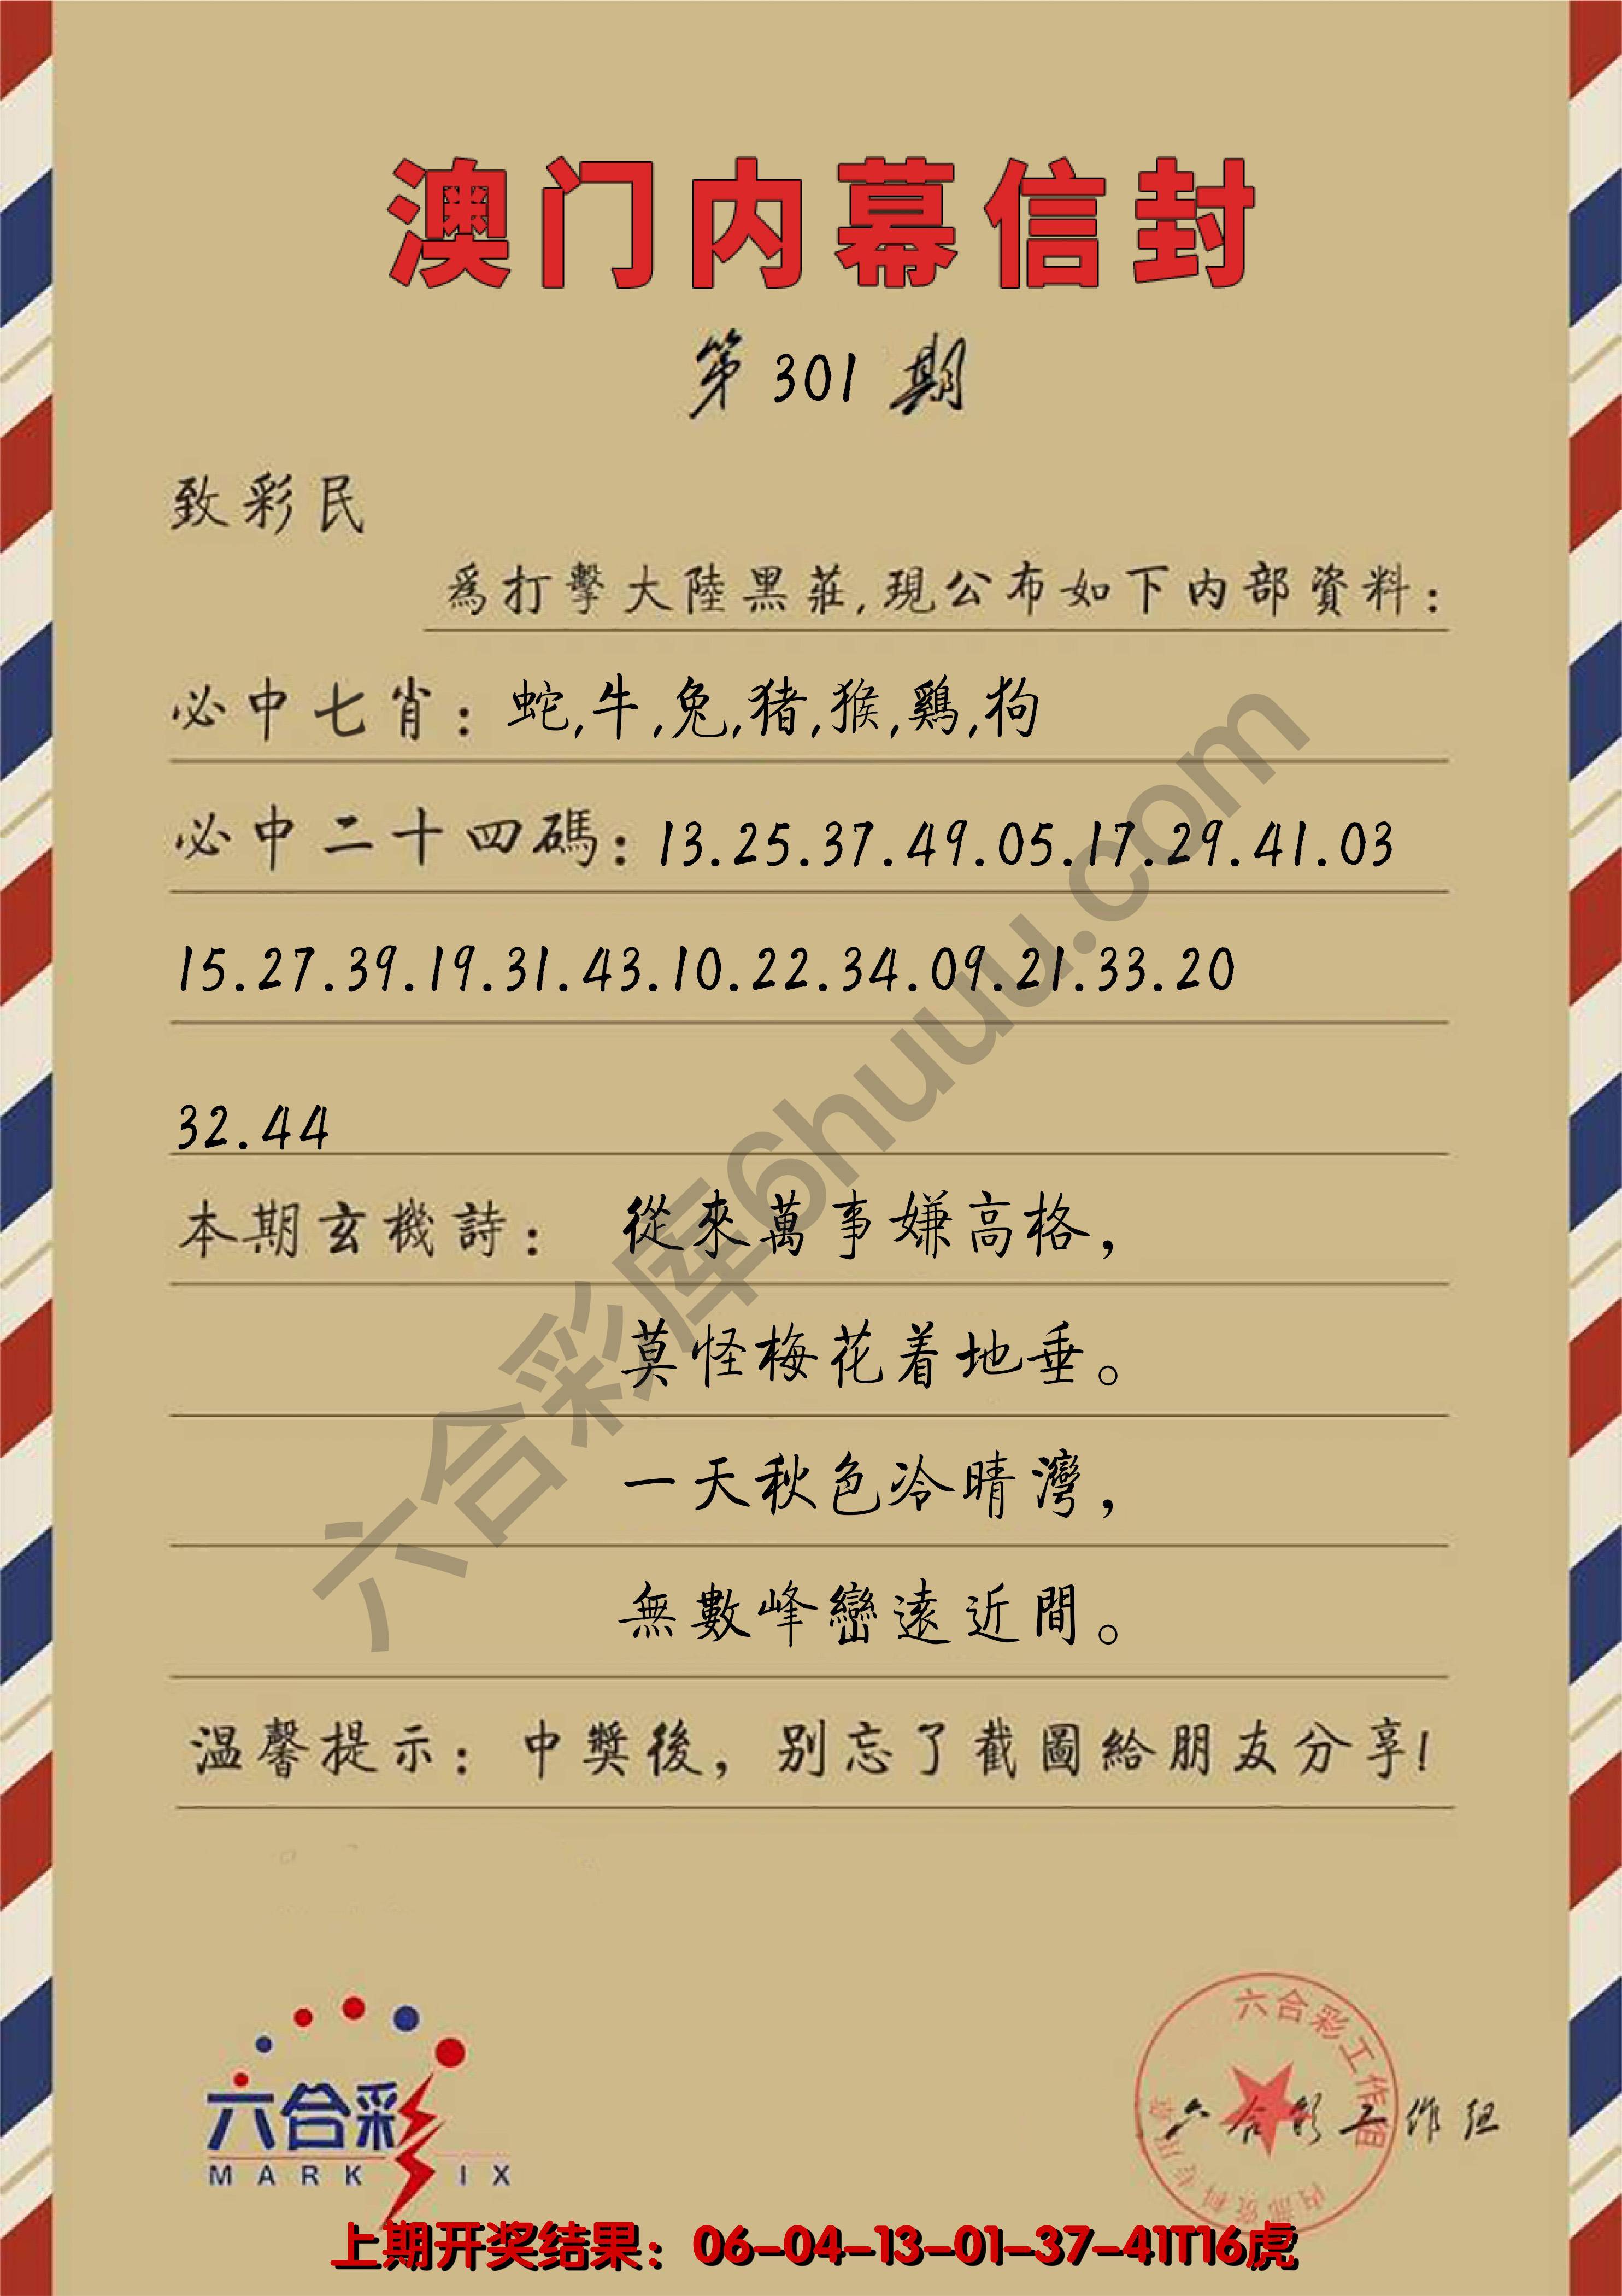 澳门内幕信封
第301期
致彩民
為打擊大陸黑莊,現公布如下內部資料:
必中七肖:蛇,牛,兔,猪,猴,鷄,狗
必中二十四碼:13.25.37.49.05.17.29.41.03
15.27.39.19.31.43.10.22.34.09.21.33.20
32.44
本期玄機詩: 從來萬事嫌高格,
莫怪梅花着地垂。
一天秋色冷晴灣,
無數峰巒遠近間。
温馨提示:中獎後,别忘了截圖給朋友分享!
六合彩库6huuu.com
六合彩
MARK SIX
六合彩工作组
内部资料专用章
六合彩工作组
上期开奖结果:06-04-13-01-37-41T16虎